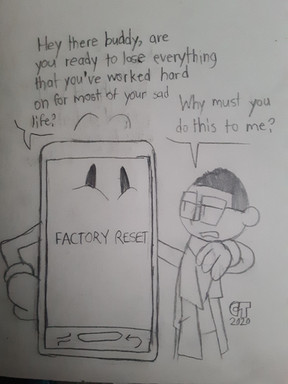 Hey there buddy, are
you ready to lose everything
that you've worked hard
on for most of your sad
life?
Why must you
do this to me?
FACTORY RESET
GT
2020